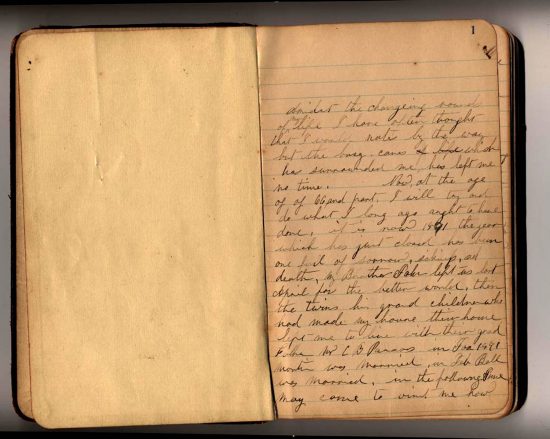 1
Amidst the changeing round
of life I have often thought
that I would note by the way
but the busy cares of life which
has surrounded me, has left me
no time. Now, at the age
of of 66 and past, I will try and
do what I long ago ought to have
done, it is now 1891 the year
which has just closed has been
one full of sorrow, sickness, and
death, My Brother left us last
April for the better world, then
the twins his grand children who
had made my house their home
left me to live with their grand
Father Mr C B in 1891
was married, in Feb Belle
was married, in the following June
May came to visit me how